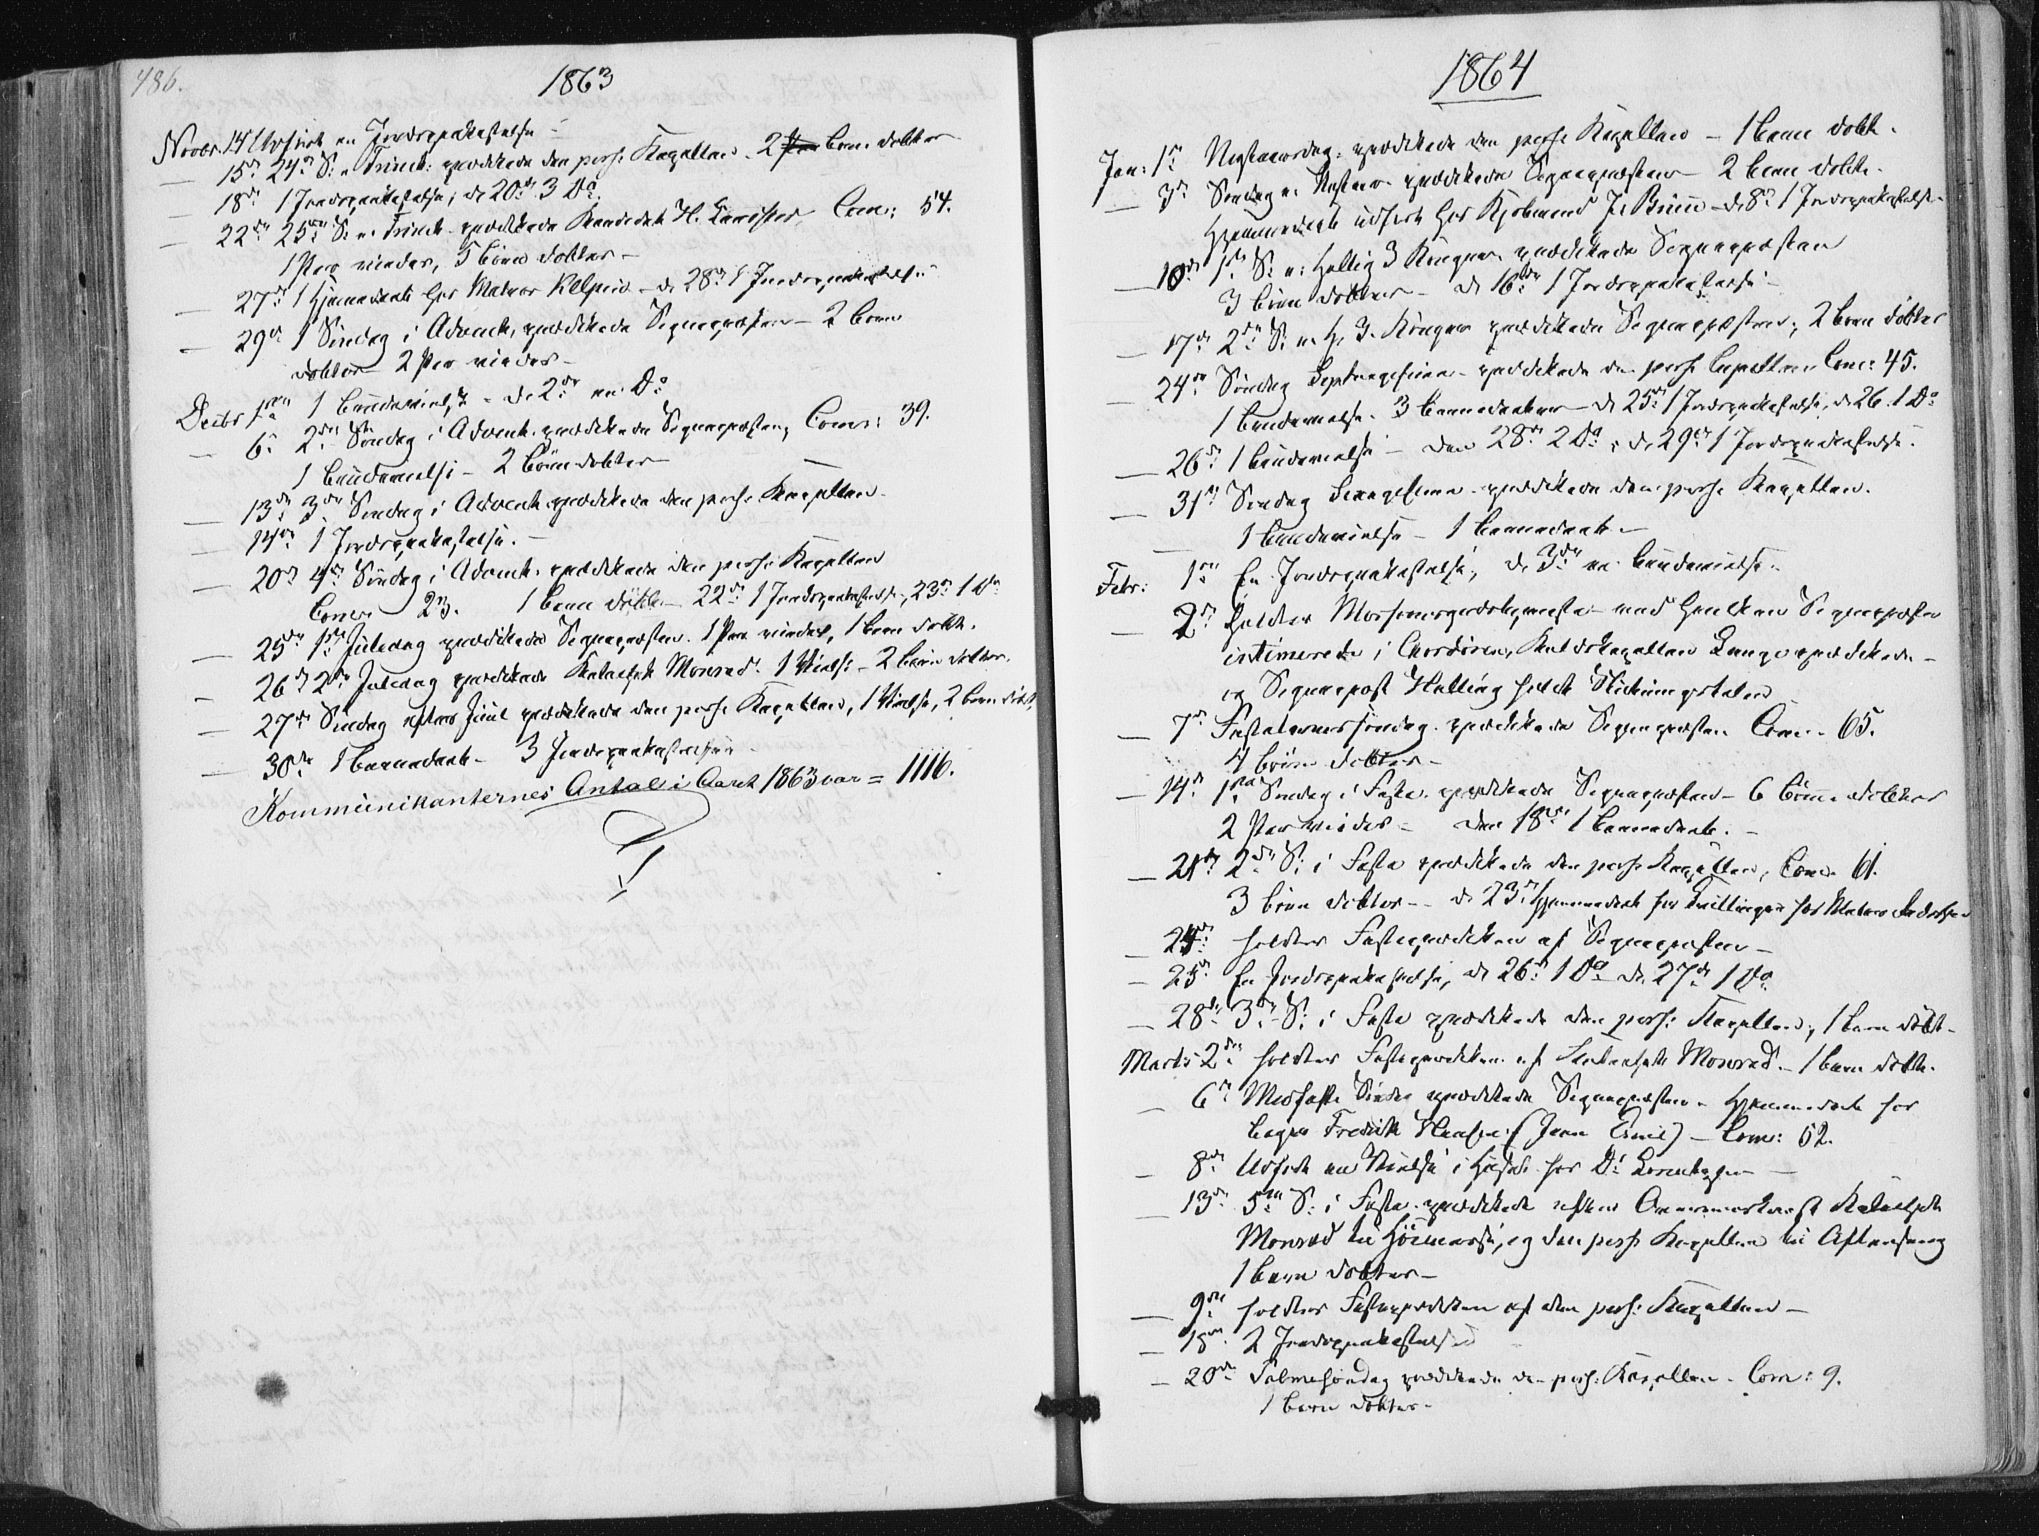 486.
1863
Novbr. 14 Udført en Jordspaakastelse
— 15de 24de S: e. Trinit: prædikede den pers: Kapellan. 2 Børn døbte
— 18de 1 Jordspaakastelse, de 20de 3 Do.
— 22de 25de S: e. Trinit. prædikede Kandidat H. Com: 54.
1 Par viedes, 5 børn døbtes —
— 27de 1 Hjemmedaab hos Matros — d. 28de 1 Jordspaakastelse
— 29de 1 Søndag i Advent, prædikede Sognepræsten — 2 børn
døbtes — 2 Par viedes —
Decbr 1ste 1 — d. 2den en Do
— 6te 2den Søndag i Advent. prædikede Sognepræsten, Com: 39.
1 — 2 børn døbtes
— 13de 3die Søndag i Advent prædikede den pers: Kapellan.
— 14de 1 Jordspaakastelse. —
— 20de 4de Søndag i Advent. prædikede den pers: Kapellan
Com: 23. 1 barn døbt — 22de 1 Jordspaakastelse, 23de 1 Do
— 25de 1ste Juledag prædikede Sognepræsten. 1 Par viedes, 1 barn døbt.
— 26de 2den Juledag prædikede Katechet Monrad. 1 Vielse — 2 børn døbtes.
— 27de Søndag efter Juul prædikede den pers: Kapellan, 1 Vielse, 2 børn døbt,
— 30te 1 barnedaab — 3 Jordspaakastelser
Kommunikanternes Antal i Aaret 1863 var = 1116.
1864
Jan: 1ste Nytaarsdag. prædikede den pers: Kapellan — 1 barn døbt.
— 3die Søndag e. Nytaar prædikede Sognepræsten — 2 børn døbte.
Hjemmedaab udført hos Kjøbmand J. — d. 8de 1 Jordspaakastelse.
— 10de 1ste S: e: Hellig 3 Konger prædikede Sognepræsten
3 børn døbtes — d. 16de 1 Jordspaakastelse —
— 17de 2den S: e. H. 3. Konger prædikede Sognepræsten, 2 børn døbtes
— 24de Søndag Septuagesima — prædikede den pers: Capellan Com: 45.
1 3 barnedaaber — d. 25de 1 Jordspaakastelse, d. 26. 1 Do
— 26de 1 — den 28de 2 Do, d. 29de 1 Jordspaakastelse.
— 31te Søndag Sexagesima — prædikede den pers: Kapellan.
— 1 — 1 barnedaab —
Febr: 1ste En Jordspaakastelse, d. 3die en
— 2den holdtes med Sognepræsten
intimerede i Chordøren, Kapellan Lange prædikede —
og Sognepræst Halling holdt
— 7de Fastelavnssøndag. prædikede Sognepræsten Com. 65.
4 børn døbtes —
— 14de 1ste Søndag i Faste. prædikede Sognepræsten — 6 børn døbtes
2 Par viedes — den 18de 1 barnedaab. —
— 21de 2den S: i Faste prædikede den pers: Kapellan, Com. 61.
3 børn døbtes — d. 23de Hjemmedaab for Tvillinger hos Matros
— 24de holdtes Fasteprædiken af Sognepræsten —
— 25de En Jordspaakastelse, d. 26de 1 Do d. 27de 1 Do.
— 28de 3die S: i Faste prædikede den pers: Kapellan, 1 barn døbt —
Marts 2den holdtes Fasteprædiken af Katechet Monrad. — 1 barn døbt.
— 6te Midfaste Søndag prædikede Sognepræsten — Hjemmedaab hos
Bager Fredrik Hansen — Com: 52.
— 8de Udført en Vielse i Huset hos —
— 13de 5te S: i Faste. prædikede efter Katechet
Monrad til Høimesse, og den pers: Kapellan til Aftensang
1 barn døbtes —
— 9de holdtes Fasteprædiken af den pers: Kapellan —
— 18de 2 Jordspaakastelser
— 20de Palmesøndag prædikede den pers: Kapellan — Com: 9.
1 barn døbtes —